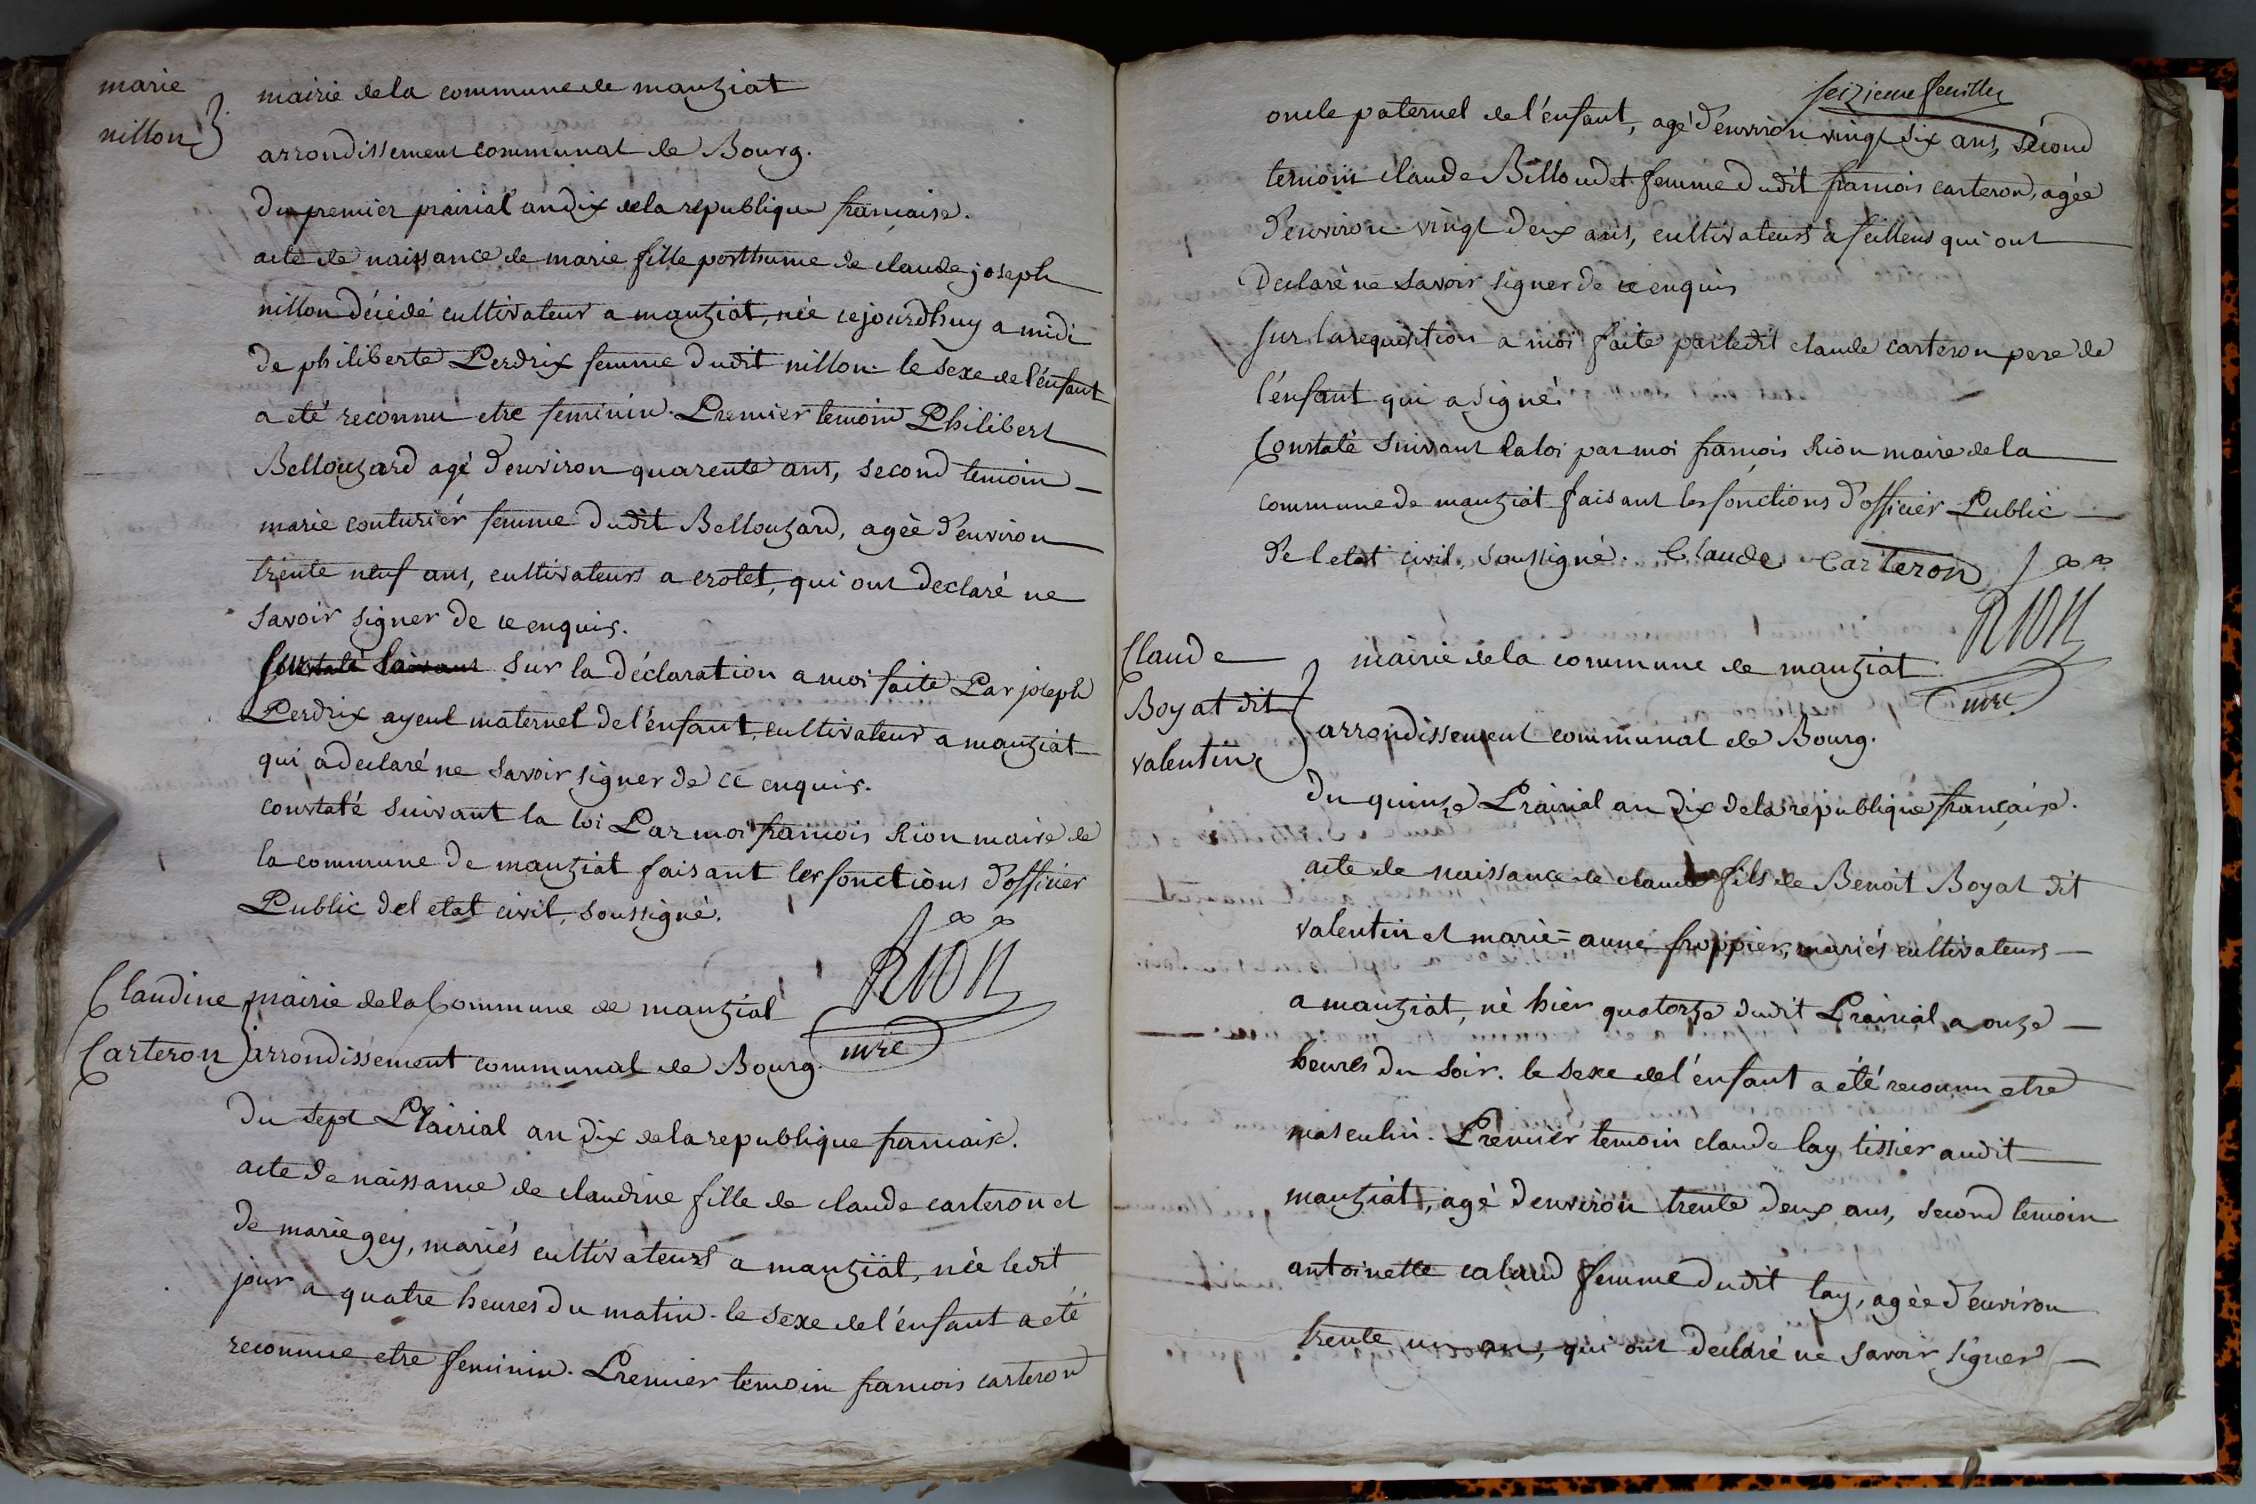 marie
nillon
mairie de la commune de manziat
arrondissement communal de Bourg.
du premier prairial an dix de la republique française.
acte de naissance de marie fille posthume de claude joseph
nillon décédé cultivateur a manziat, née cejourdhuy a midi
de philiberte Perdrix femme dudit nillon. le sexe de l'énfant
a eté reconnu etre feminin. Premier temoin Philibert
Bellouzard agé d'environ quarente ans, second temoin
marie couturiér femme dudit Bellouzard, agéé d'environ
trente neuf ans, cultivateurs a crotet, qui ont declaré ne
savoir signer de ce enquis.
Constaté suivant sur la déclaration a moi faite Par joseph
Perdrix ayeul maternel de l'énfant, cultivateur a manziat
qui a declaré ne savoir signer de ce enquis.
constaté suivant la loi Par moi françois Rion maire de
la commune de manziat faisant les fonctions d'officier
Public de l etat civil, soussigné.
Rion
mre
Claudine
Carteron
mairie de la Commune de manziat
arrondissement communal de Bourg.
du sept Prairial an dix de la republique francaise.
acte de naissance de claudine fille de claude carteron et
de marie gey, mariés cultivateurs a manziat, née ledit
jour a quatre heures du matin. le sexe de l'énfant a été
reconnue etre feminin. Premier temoin francois carteron
seizieme feuillet
oncle paternel de l'énfant, agé d'environ vingt six ans, sécond
temoin claude Billoudet femme dudit francois carteron, agée
d'environ vingt deux ans, cultivateurs a feillens qui ont
declaré ne savoir signer de ce enquis
sur la requisition a moi faite par ledit claude carteron pere de
l'énfant qui a signé.
Constaté suivant la loi par moi françois Rion maire de la
commune de manziat faisant les fonctions d'officier Public
de l etat civil, soussigné. Claude Carteron
Rion
mre
Claude
Boyat dit
valentin
mairie de la commune de manziat
arrondissement communal de Bourg.
du quinze Prairial an dix de la republique française.
acte de naissance de claude fils de Benoit Boyat dit
valentin et marie=anne froppier, mariés cultivateurs
a manziat, né hier quatorze dudit Prairial a onze
heures du soir. le sexe de l'énfant a été reconnu etre
masculin. Premier temoin claude lay tissier audit
manziat, agé d'environ trente deux ans, second temoin
antoinette caland femme dudit lay, agée d'environ
trente un ans, qui ont declaré ne savoir signer